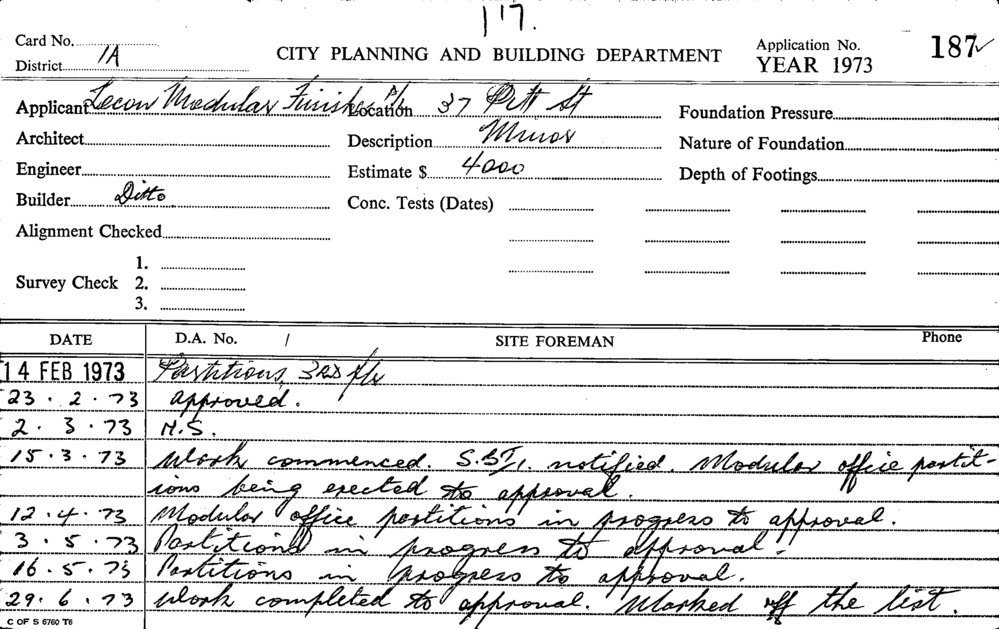 117.
Card No.
District 1A
CITY PLANNING AND BUILDING DEPARTMENT
Application No. 187 ✓
YEAR 1973
Applicant Lecon Modular Finishes P/L Location 37 Pitt St Foundation Pressure
Architect Description Minor Nature of Foundation
Engineer Estimate $ 4000 Depth of Footings
Builder Ditto Conc. Tests (Dates)
Alignment Checked
1.
Survey Check 2.
3.
DATE D.A. No. / SITE FOREMAN Phone
14 FEB 1973 Partitions, 3RD flr
23 . 2 . 73 approved.
2 . 3 . 73 N.S.
15 . 3 . 73 Work commenced. notified. Modular office partit-
ions being erected to approval.
12 . 4 . 73 Modular office partitions in progress to approval.
3 . 5 . 73 Partitions in progress to approval.
16 . 5 . 73 Partitions in progress to approval.
29 . 6 . 73 Work completed to approval. Marked off the list.
C OF S 6760 T6